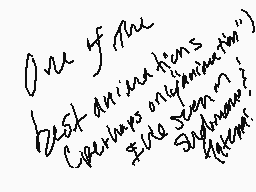 One of the
best animations
(perhaps only "animation")
I've seen on
Sudomemo!